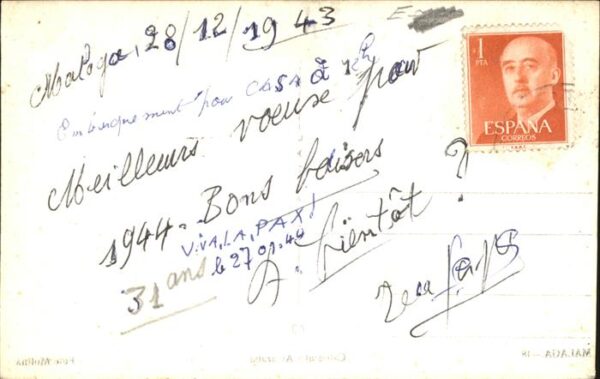 Malaga, 28/12/1943
Embarquement pour CASA à
Meilleurs voeux pour
1944. Bons baisers
VIVA, LA, PAX!
le 27 01.44
31 ans
A Bientôt ?
1
PTA
ESPAÑA
CORREOS
MALAGA - 18